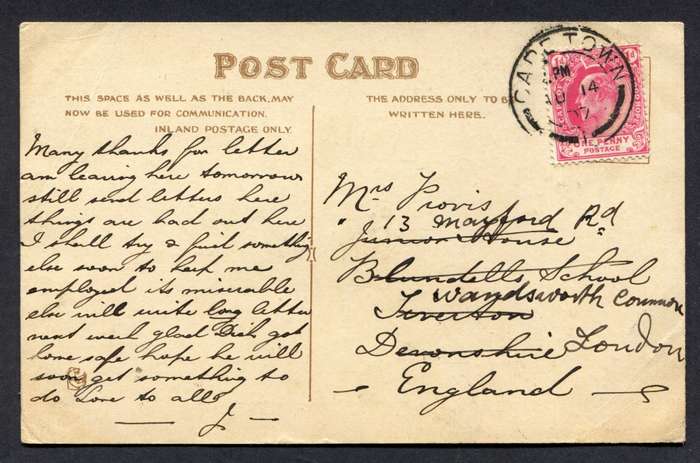 POST CARD
THIS SPACE AS WELL AS THE BACK, MAY
NOW BE USED FOR COMMUNICATION.
INLAND POSTAGE ONLY.
THE ADDRESS ONLY TO B
WRITTEN HERE.
CAPE TOWN
PM
14
07
ONE PENNY
POSTAGE
Many thanks for letter
am leaving here tomorrow
still send letters here
things are bad out here
I shall try & find something
else soon to keep me
employed its miserable
else will write long letter
next week glad Dick got
home safe hope he will
soon get something to
do Love to all
J
Mrs Provis
13 Mayford Rd
Junior House
Blundells School
Wandsworth Common
Tiverton
Devonshire London
England